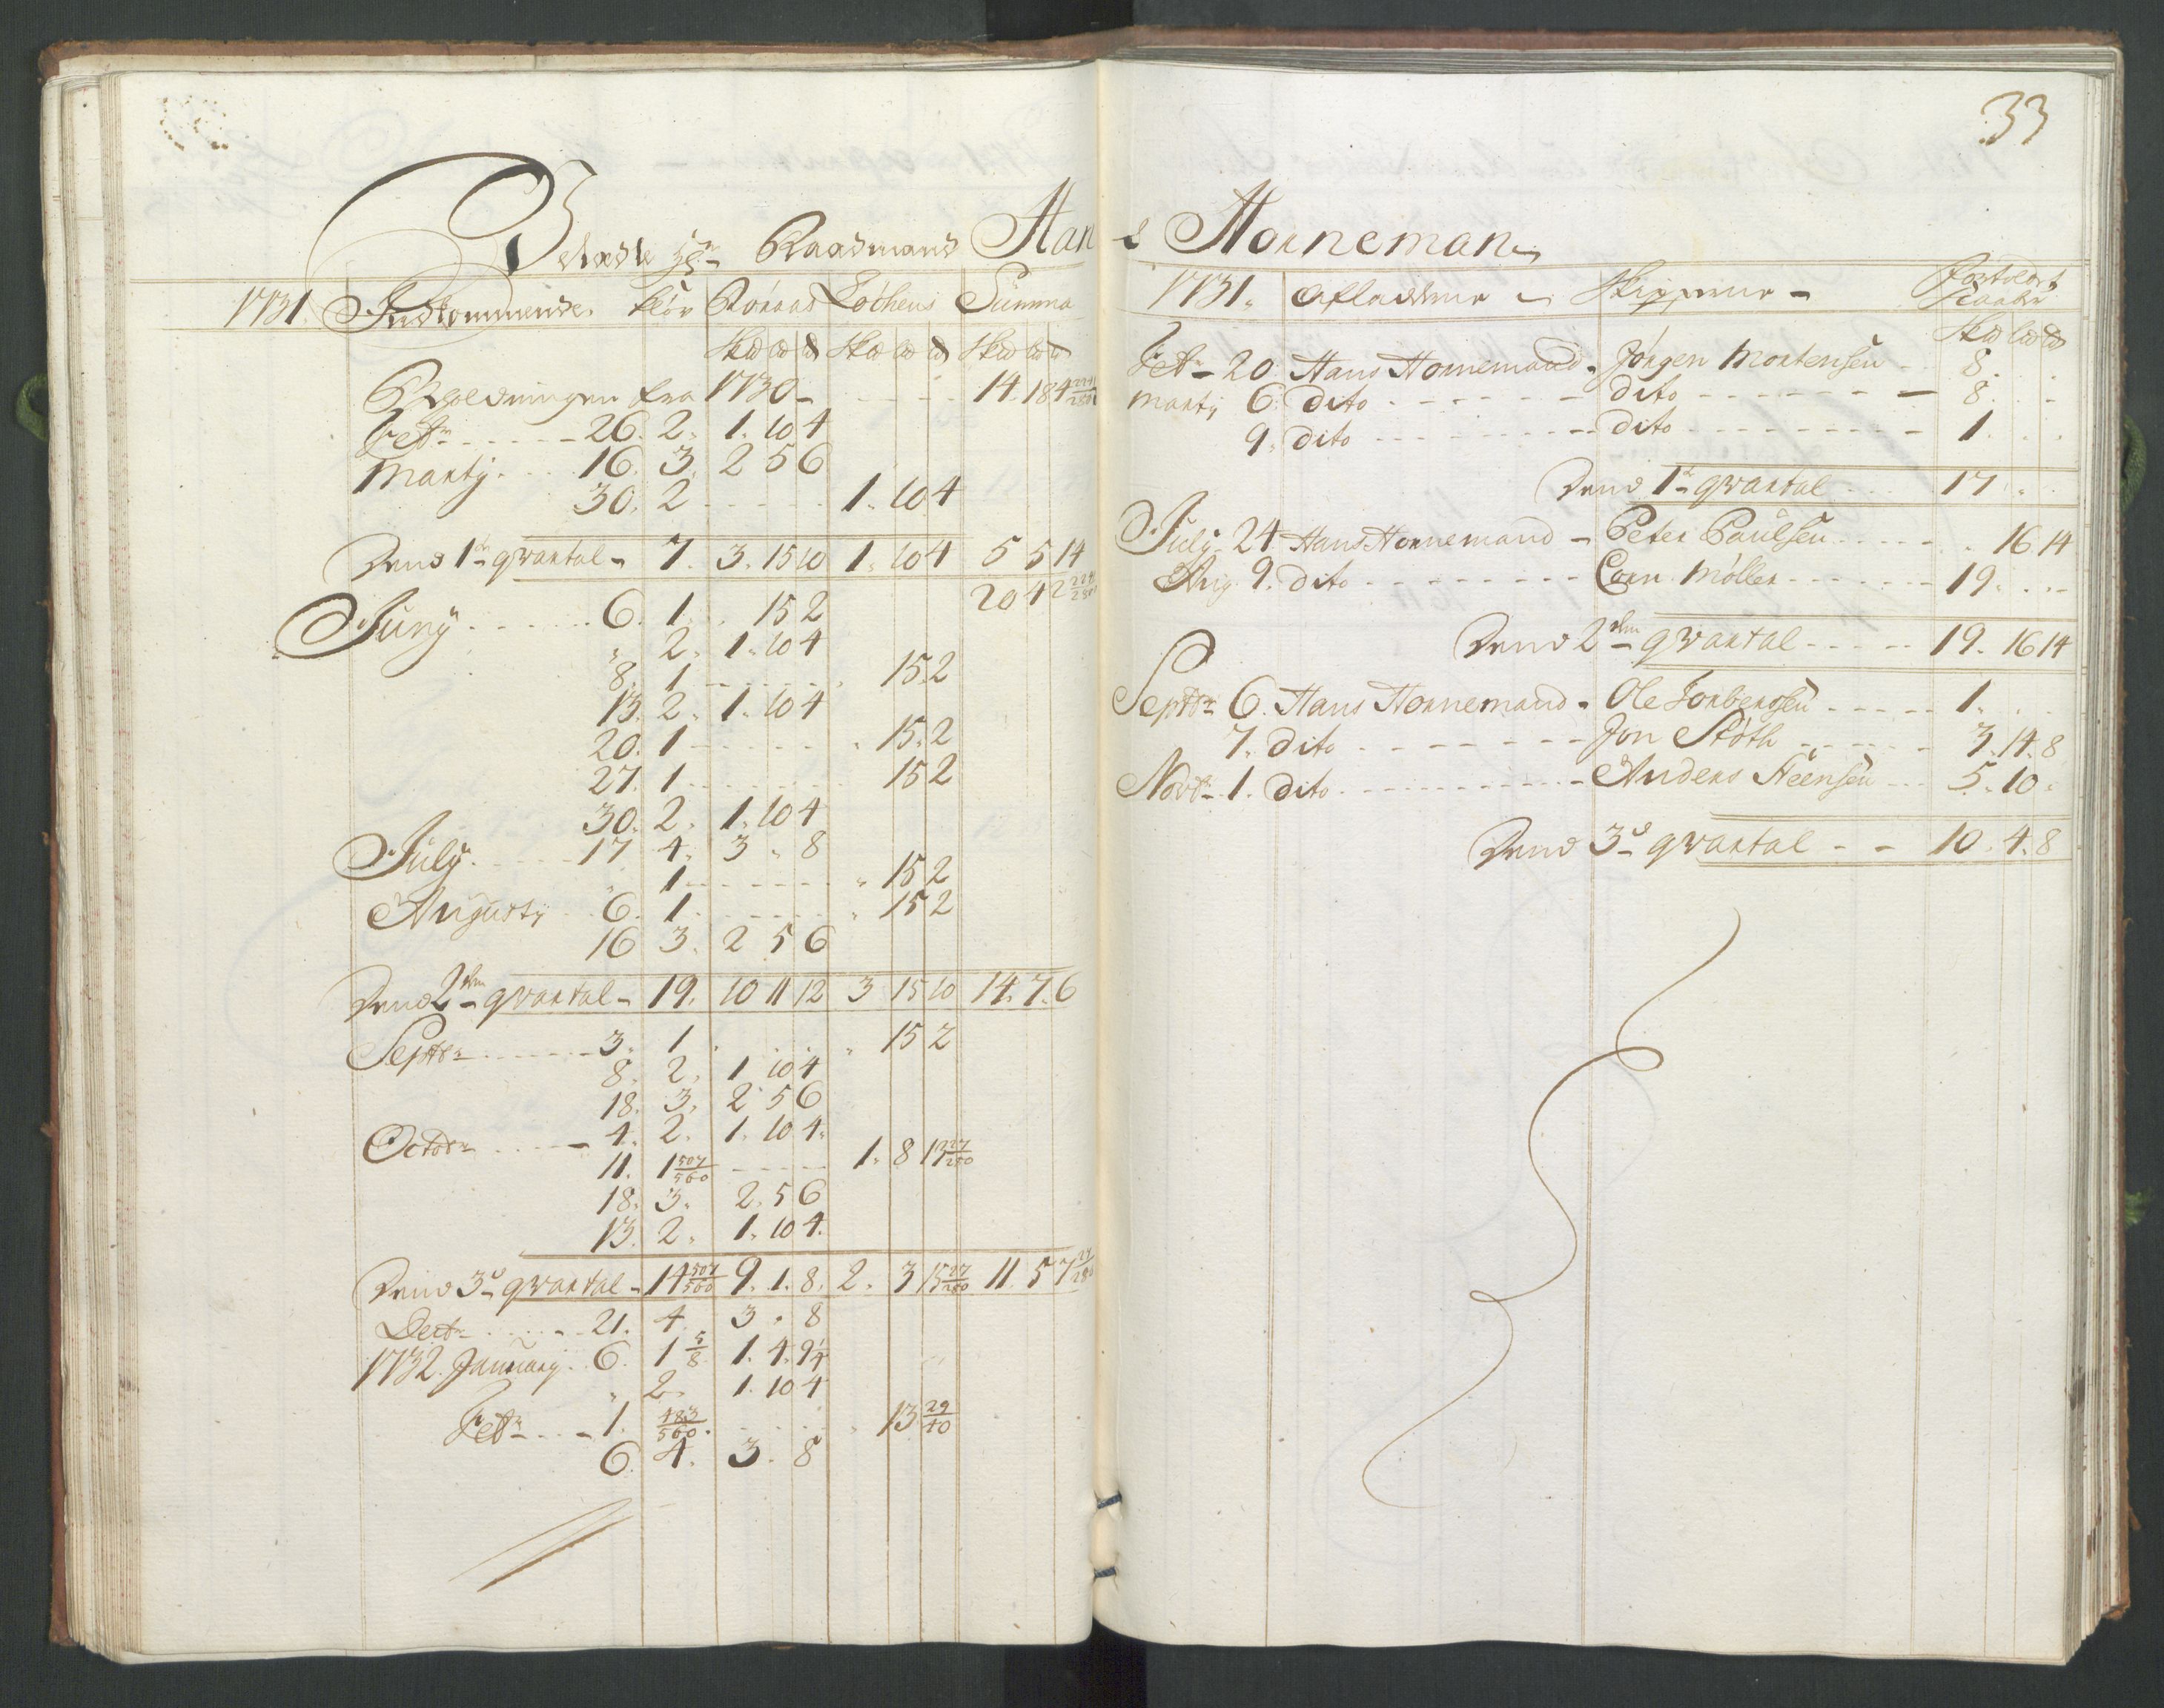 33
Velædle Hr. Raadmand Hans Horneman
1731. Indkommende kløv Röraas Löchens Summa
Skd lȡ ℔ Skd lȡ ℔ Skd lȡ ℔
Beholdningen fra 1730 - - - - 14. 18 4
Febr - - - - 26. 2. 1. 10 4
Marty - - - 16. 3. 2 5 6
30. 2 - - - - 1. 10 4
Dend 1te qvartal - 7. 3. 15 10 1. 10 4 5 5 14
20 4 2
Juny - - - - 6. 1. . 15 2
" 2. 1. 10 4
8. 1 - - - - 15. 2
13. 2. 1. 10 4
20. 1 - - - - " 15. 2
27. 1 - - - - 15 2
30. 2. 1. 10 4
July - - - 17 4. 3 " 8
" 1 - - - - " 15 2
Augusty 6. 1 - - - - " 15 2
16 3. 2 5 6
Dend 2den qvartal - 19. 10 11 12 3 15 10 14. 7. 6
Septbr - - - - 3. 1 . . . . " 15 2
8. 2. 1 10 4
18. 3. 2 5 6
Octobr - - - 4. 2. 1. 10 4.
11. 1 507/560 - - - - 1. 8 13 27/280
18. 3. 2. 5 6
13. 2. 1. 10 4.
Dend 3d qvartal - 14 507/560 9. 1. 8. 2. 3 15 27/280 11. 5 7 27/280
Decbr - - - - 21. 4. 3 . 8
1732. January. 6. 1 5/8 1. 4. 9 1/4
" 2. 1. 10 4
Febr - - - 1. 483/560 . . . . " 13 29/40
6. 4. 3. 8
1731. Afladere - Skippere -
Skd lȡ ℔
Febr - 20. Hans Hornemand - Jörgen Mortensen - 8. . .
Marty 6. dito - - - - - dito - - - - - 8. . .
9. dito - - - - - dito - - - - - 1. . .
Dend 1te qvartal - - - 17 . .
July - 24 Hans Hornemand - Peter Paulsen - - - - . 16 14
Aug. 9. dito - - - - - Corn. Möller - - - - 19. . .
Dend 2den qvartal - - - - 19. 16 14
Septbr 6. Hans Hornemand - Ole Torbersen - - - - 1. . .
7. dito - - - - - Jon Stöth - - - - 3. 14. 8
Novbr 1. dito - - - - - Anders Steensen - - 5. 10 .
Dend 3d qvartal - - 10. 4. 8